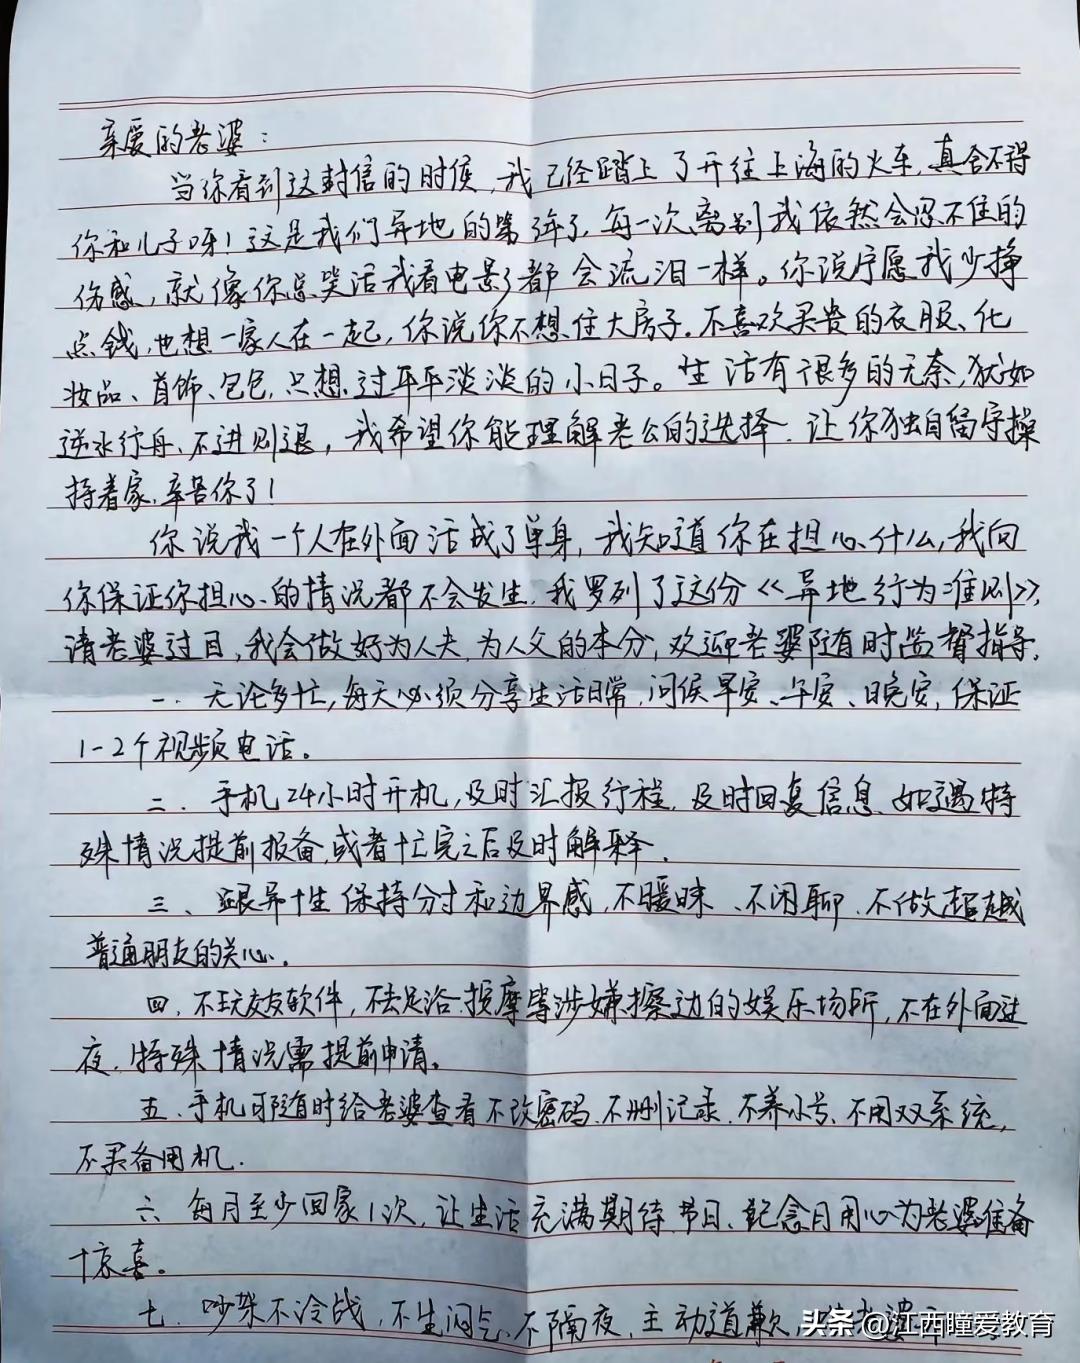 亲爱的老婆：
当你看到这封信的时候，我已经踏上了开往上海的火车，真舍不得
你和儿子呀！这是我们异地的第年了，每一次离别我依然会忍不住的
伤感，就像你总笑话我看电影都会流泪一样。你说宁愿我少挣
点钱，也想一家人在一起，你说你不想住大房子.不喜欢买贵的衣服、化
妆品、首饰、包包，只想过平平淡淡的小日子。生活有很多的无奈，犹如
逆水行舟、不进则退，我希望你能理解老公的选择.让你独自留守操
持着家，辛苦你了！
你说我一个人在外面活成了单身，我知道你在担心什么，我向
你保证你担心的情况都不会发生.我罗列了这份《异地行为准则》，
请老婆过目，我会做好为人夫，为人父的本分，欢迎老婆随时监督指导.
一.无论多忙，每天必须分享生活日常，问候早安、午安、晚安，保证
1-2个视频电话。
二.手机24小时开机，及时汇报行程，及时回复信息、如遇特
殊情况提前报备，或者忙完之后及时解释.
三、跟异性保持分寸和边界感，不暧昧、不闲聊、不做超越
普通朋友的关心.
四.不玩交友软件，不去足浴.按摩等涉嫌擦边的娱乐场所，不在外面过
夜.特殊情况需提前申请。
五.手机可随时给老婆查看不改密码、不删记录.不养小号、不用双系统，
不买备用机.
六.每月至少回家1次，让生活充满期待.节日、纪念日用心为老婆准备
惊喜。
七.吵架不冷战，不生闷气，不隔夜，主动道歉，老婆
头条@江西瞳爱教育